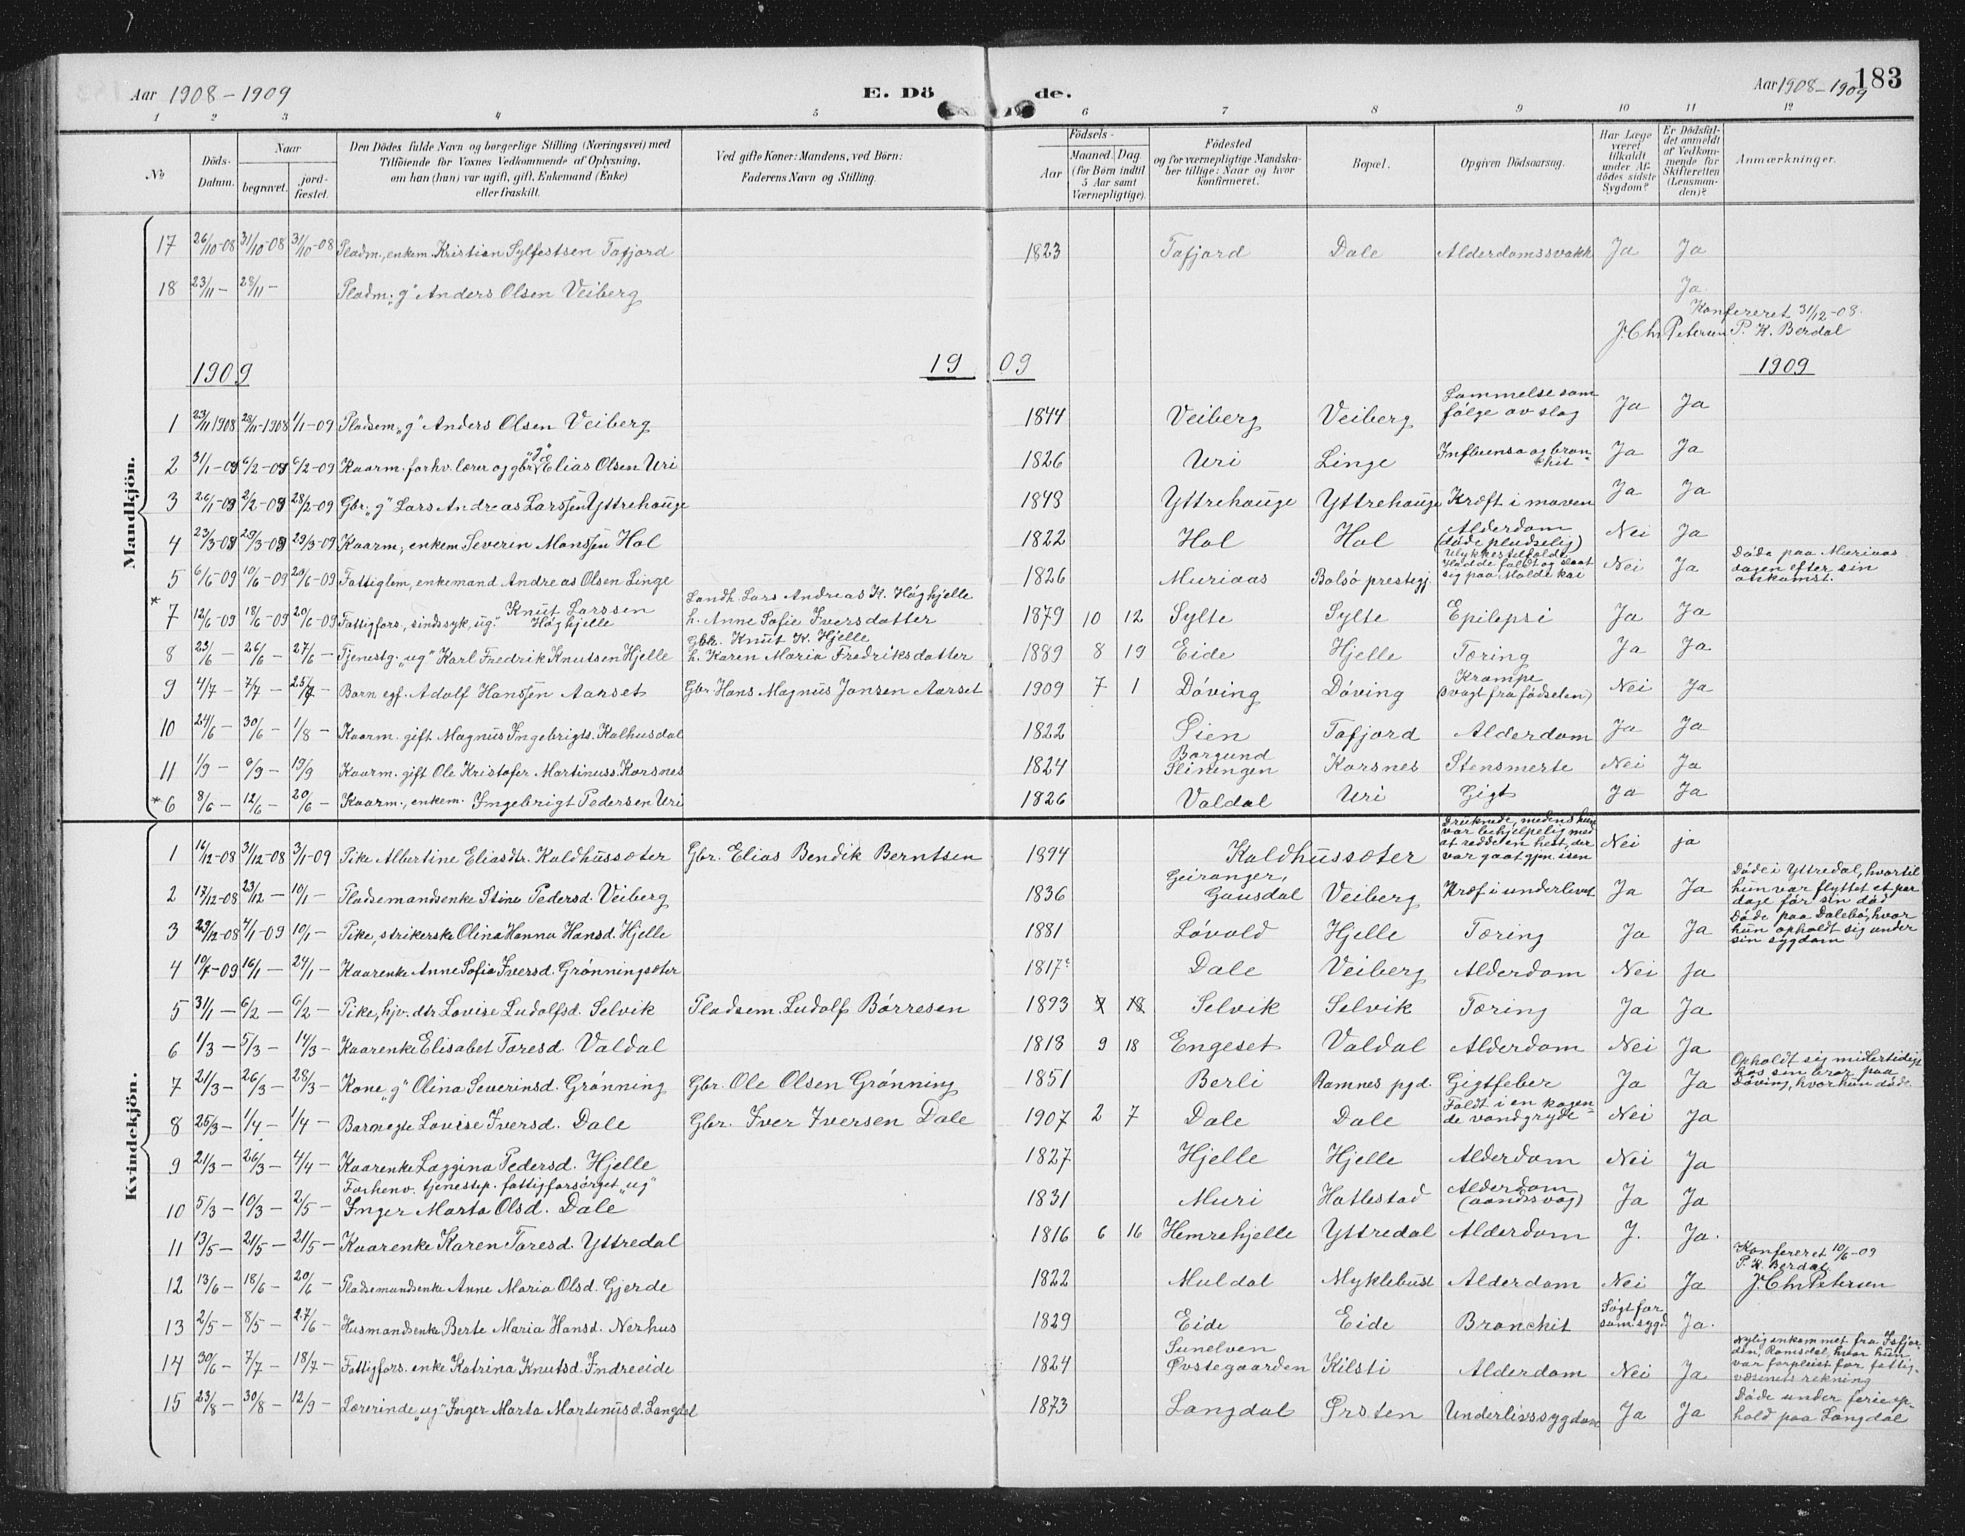 Aar 1908 – 1909 E. Dö de. Aar 1908 – 1909 183
1 2 3 4 5 6 7 8 9 10 11 12
No
Döds-Datum.
Naar
begravet.
jord-fæstet.
Den Dödes fulde Navn og borgerlige Stilling (Næringsvei) med
Tilföiende for Voxnes Vedkommende af Oplysning,
om han (hun) var ugift, gift, Enkemand (Enke)
eller fraskilt.
Ved gifte Koner: Mandens, ved Börn:
Faderens Navn og Stilling.
Födsels-
Aar
Maaned. Dag
(for Börn indtil
5 Aar samt
Værnepligtige).
Födested
og for værnepligtige Mandska-
ber tillige: Naar og hvor
konfirmeret.
Bopæl.
Opgiven Dödsaarsag.
Har Læge
været
tilkaldt
under Af-
dödes sidste
Sygdom?
Er Dödsfal-
det anmeldt
af Vedkom-
mende for
Skifteretten
(Lensman-
den)?
Anmærkninger.
Mandkjön.
17 26/10-08 31/10-08 31/10-08 Pladm., enkem. Kristian Sylfestsen Tafjord 1823 Tafjord Dale Alderdomssvakh Ja Ja
18 23/11 – 28/11 – Pladm. „g" Anders Olsen Veiberg Ja.
Konfereret 31/12-08.
J. Chr Petersen P. K. Berdal
1909 19 09 1909
1 23/11 1908 28/11-1908 1/1-09 Pladsem „g" Anders Olsen Veiberg 1844 Veiberg Veiberg Lammelse som følge av slag Ja Ja
2 31/1-09 6/2-09 6/2-09 Kaarm. forhv. lærer og gbr. „g" Elias Olsen Uri 1826 Uri Linge Influensa og bronkhit Ja Ja
3 26/1-09 2/2-09 28/2-09 Gbr. „g" Lars Andreas Larssen Yttrehauge 1848 Yttrehauge Yttrehauge Kræft i maven Ja Ja
4 23/3-09 29/3-09 29/3-09 Kaarm., enkem Severin Monssen Hol 1822 Hol Hol Alderdom (døde pludselig) Nei Ja
5 6/6-09 10/6-09 20/6-09 Fattiglem, enkemand Andreas Olsen Linge 1826 Muriaas Bolsø prestegj. Ulykkestilfælde. Hadde faldt og slaat sig paa Molde kai Nei Ja Døde paa Muriaas dagen efter sin ankomst.
* 7 12/6-09 18/6-09 20/6-09 Fattigfors., sindssyk „ug" Knut Larssen Høghjelle Landh. Lars Andreas K. Høghjelle h. Anne Sofie Iversdatter 1879 10 12 Sylte Sylte Epilepsi Ja Ja
8 23/6 – 26/6 – 27/6 – Tjenestg. „ug" Karl Fredrik Knutsen Hjelle Gbr. Knut K. Hjelle h. Karen Maria Fredriksdatter 1889 8 19 Eide Hjelle Tæring Ja Ja
9 4/7 – 7/7 – 25/7 – Barn egf. Adolf Hanssen Aarset Gbr. Hans Magnus Jonsen Aarset 1909 7 1 Døving Døving Krampe (svagt fra fødselen) Nei Ja
10 24/6 – 30/6 – 1/8 – Kaarm. gift Magnus Ingebrigts. Kalhusdal 1822 Øien Tafjord Alderdom Ja Ja
11 1/9 – 6/9 – 19/9 Kaarm. gift Ole Kristofer Martinuss. Korsnes 1824 Borgund Sliningen Korsnes Stensmerte Nei Ja
* 6 8/6 – 12/6 – 20/6 – Kaarm., enkem. Ingebrigt Pedersen Uri 1826 Valdal Uri Gigt Ja Ja
Kvindekjön.
1 16/12-08 31/12-08 3/1-09 Pike Albertine Eliasdtr. Kaldhussæter Gbr. Elias Bendik Berntsen 1894 Kaldhussæter Druknede, medens hun var behjelpelig med at redde en hest, der var gaat gjen. isen Nei ja
2 17/12-08 23/12 – 10/1 – Pladsemandsenke Stine Pedersd. Veiberg 1836 Geiranger, Gausdal Veiberg Kræf i underlivet Ja Ja Døde i Yttredal, hvortil hun var flyttet et par dage før sin død
3 29/12-08 4/1-09 10/1 – Pike, strikerske Olina Hanna Hansd. Hjelle 1881 Løvold Hjelle Tæring Ja Ja Døde paa Dalebø, hvor hun opholdt sig under sin sygdom
4 10/1-09 16/1 – 24/1 – Kaarenke Anne Sofie Iversd. Grønningsæter 1817? Dale Veiberg Alderdom Nei Ja
5 31/1 – 6/2 – 6/2 – Pike, hjv. dtr. Lovise Ludolfsd. Selvik Pladsem. Ludolf Børresen 1893 7 18 Selvik Selvik Tæring Ja Ja
6 1/3 – 5/3 – 14/3 – Kaarenke Elisabet Toresd. Valdal 1818 9 18 Engeset Valdal Alderdom Nei Ja
7 21/3 – 26/3 – 28/3 – Kone „g" Olina Severinsd. Grønning Gbr. Ole Olsen Grønning 1851 Berli Ramnes pgd. Gigtfeber Ja Ja Opholdt sig midlertidigt hos sin bror paa Døving, hvor hun døde.
8 25/3 – 1/4 – 1/4 – Barnegte Lovise Iversd. Dale Gbr. Iver Iversen Dale 1907 2 7 Dale Dale Faldt i en kogende vandgryde Nei Ja
9 21/3 – 26/3 – 4/4 – Kaarenke Laggina Pedersd. Hjelle 1827 Hjelle Hjelle Alderdom Nei Ja
10 5/3 – 10/3 – 2/5 – Forhenv. tjenestep. fattigforsørget „ug" Inger Marta Olsd. Dale 1831 Muri Hatlestad Alderdom (aandssvag) Ja Ja
11 13/5 – 21/5 – 21/5 – Kaarenke Karen Toresd. Yttredal 1816 6 16 Hemrehjelle Yttredal Alderdom J. Ja.
Konfereret 10/6-09
P. K. Berdal
J. Chr Petersen
12 13/6 – 18/6 – 20/6 – Pladsemandsenke Anne Maria Olsd. Gjerde 1822 Muldal Myklebust Alderdom Nei Ja
13 2/5 – 8/5 – 27/6 – Husmandsenke Berte Maria Hansd. Nerhus 1829 Eide Eide Bronchit Søgt for som. sygd. Ja.
14 30/6 – 7/7 – 18/7 – Fattigfors. enke Katrina Knutsd. Indreeide 1824 Sunelven Øvstegaarden Kilsti Alderdom Nei Ja Nylig ankommet fra Isfjorden, Romsdal, hvor hun var forpleiet for fattigvæsenets rekning
15 23/8 – 30/8 – 12/9 – Lærerinde „ug" Inger Marta Martinusd. Langdal 1873 Langdal Ørsten Underlivssygdom Ja Ja Døde under ferieophold paa Langdal